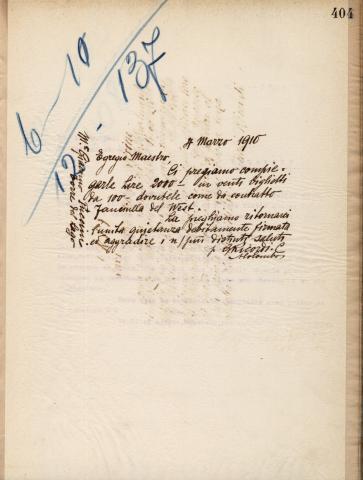 404
6 - 10
12 - 137
Mo Giacomo Puccini
Torre del Lago
4 Marzo 1910
Egregio Maestro.
Ci pregiamo compie-
garle Lire 2000- in venti biglietti
da 100- dovutele come da contratto
Fanciulla del West.
La preghiamo ritornarci
l'unita quietanza debitamente firmata
ed aggradire i n/ più distinti saluti
p. G. Ricordi & C.